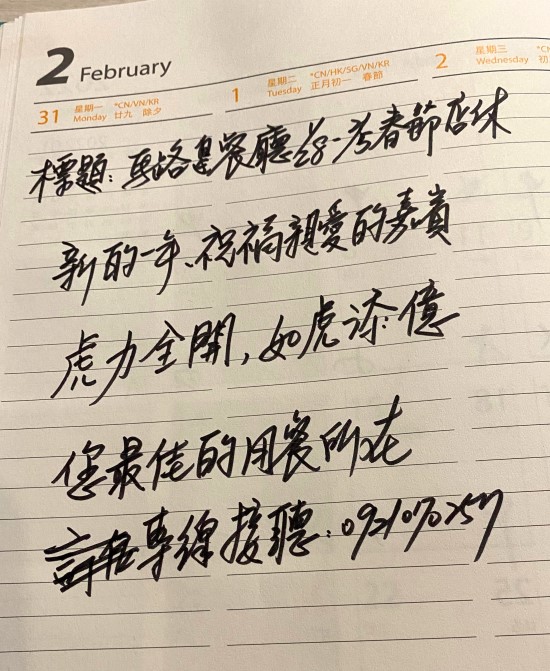 2 February
31 星期一 Monday *CN/VN/KR 廿九 除夕
1 星期二 Tuesday *CN/HK/SG/VN/KR 正月初一 春節
2 星期三 Wednesday *CN 初
標題:馬路邊餐廳 為春節店休
新的一年、祝福親愛的嘉賓
虎力全開,如虎添億
您最佳的用餐所在
專線接聽:0921070257
25